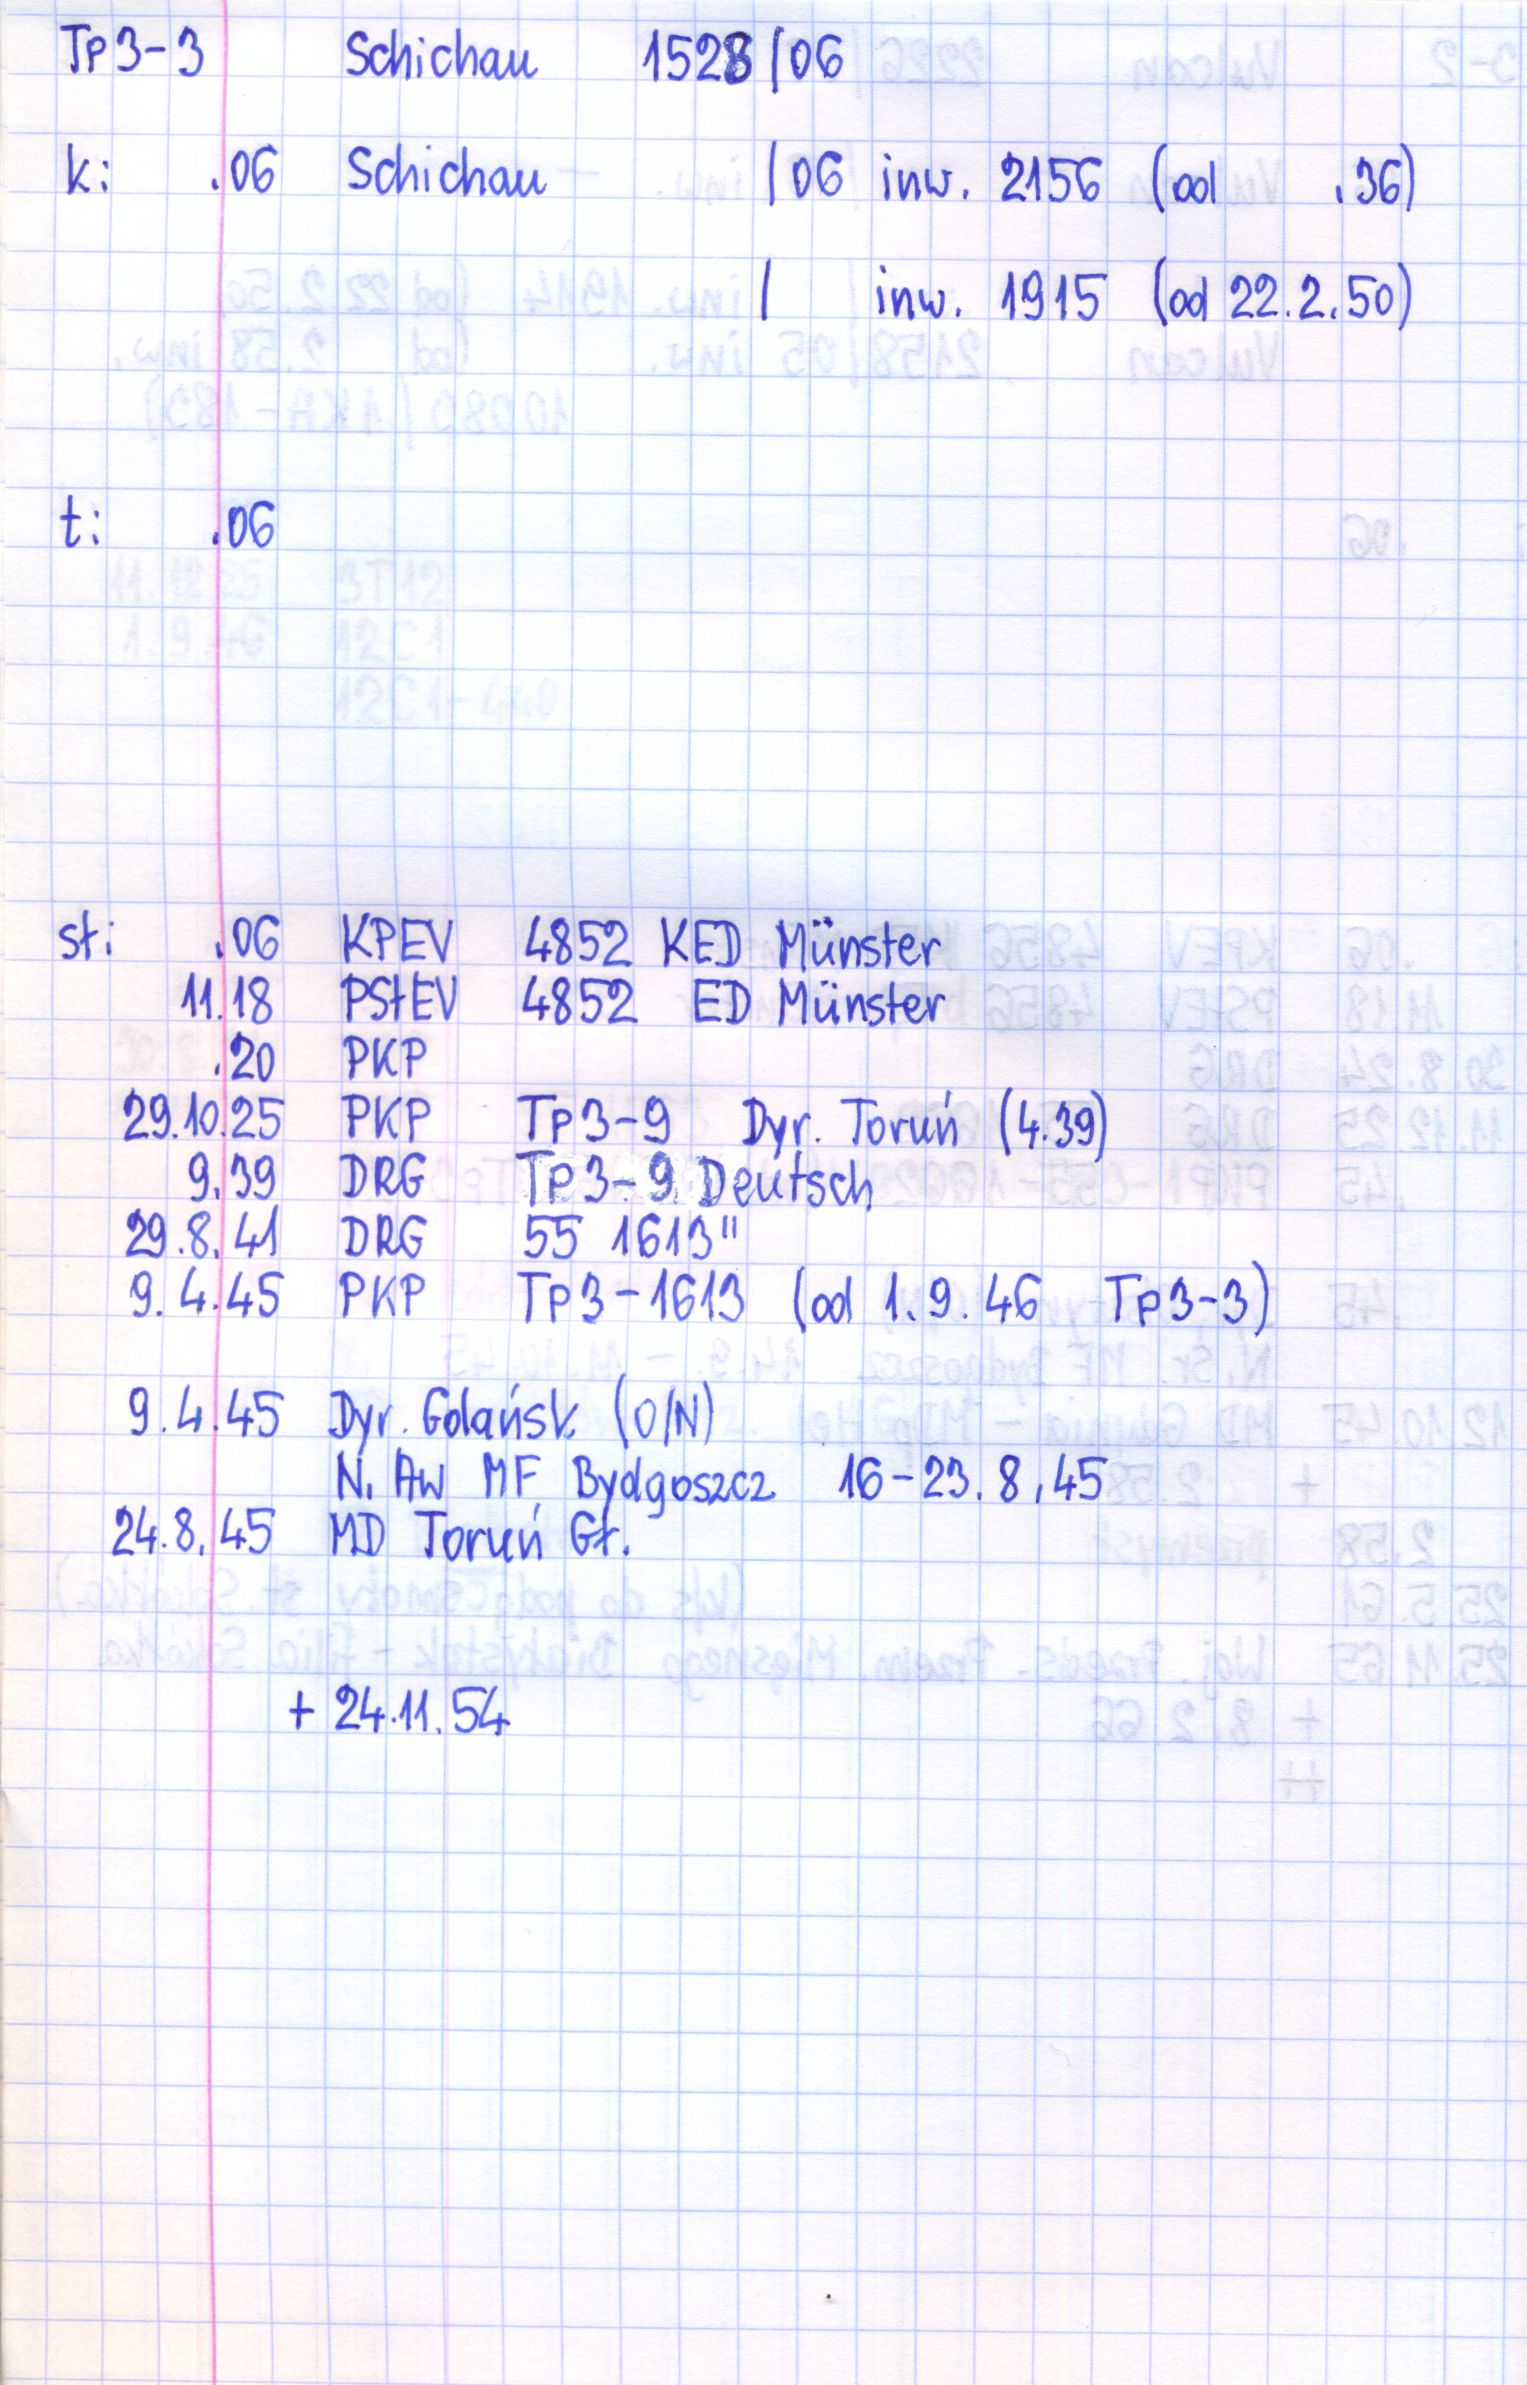 Tp3-3 Schichau 1528/06
k: .06 Schichau /06 inw. 2156 (od .36)
/ inw. 1915 (od 22.2.50)
t: .06
st: .06 KPEV 4852 KED Münster
11.18 PStEV 4852 ED Münster
.20 PKP
29.10.25 PKP Tp3-9 Dyr. Toruń (4.39)
9.39 DRG Tp3-9 Deutsch
29.8.41 DRG 55 1613"
9.4.45 PKP Tp3-1613 (od 1.9.46 Tp3-3)
9.4.45 Dyr. Gdańsk (O/N)
N. Aw MF Bydgoszcz 16-23.8.45
24.8.45 MD Toruń Gł.
+ 24.11.54